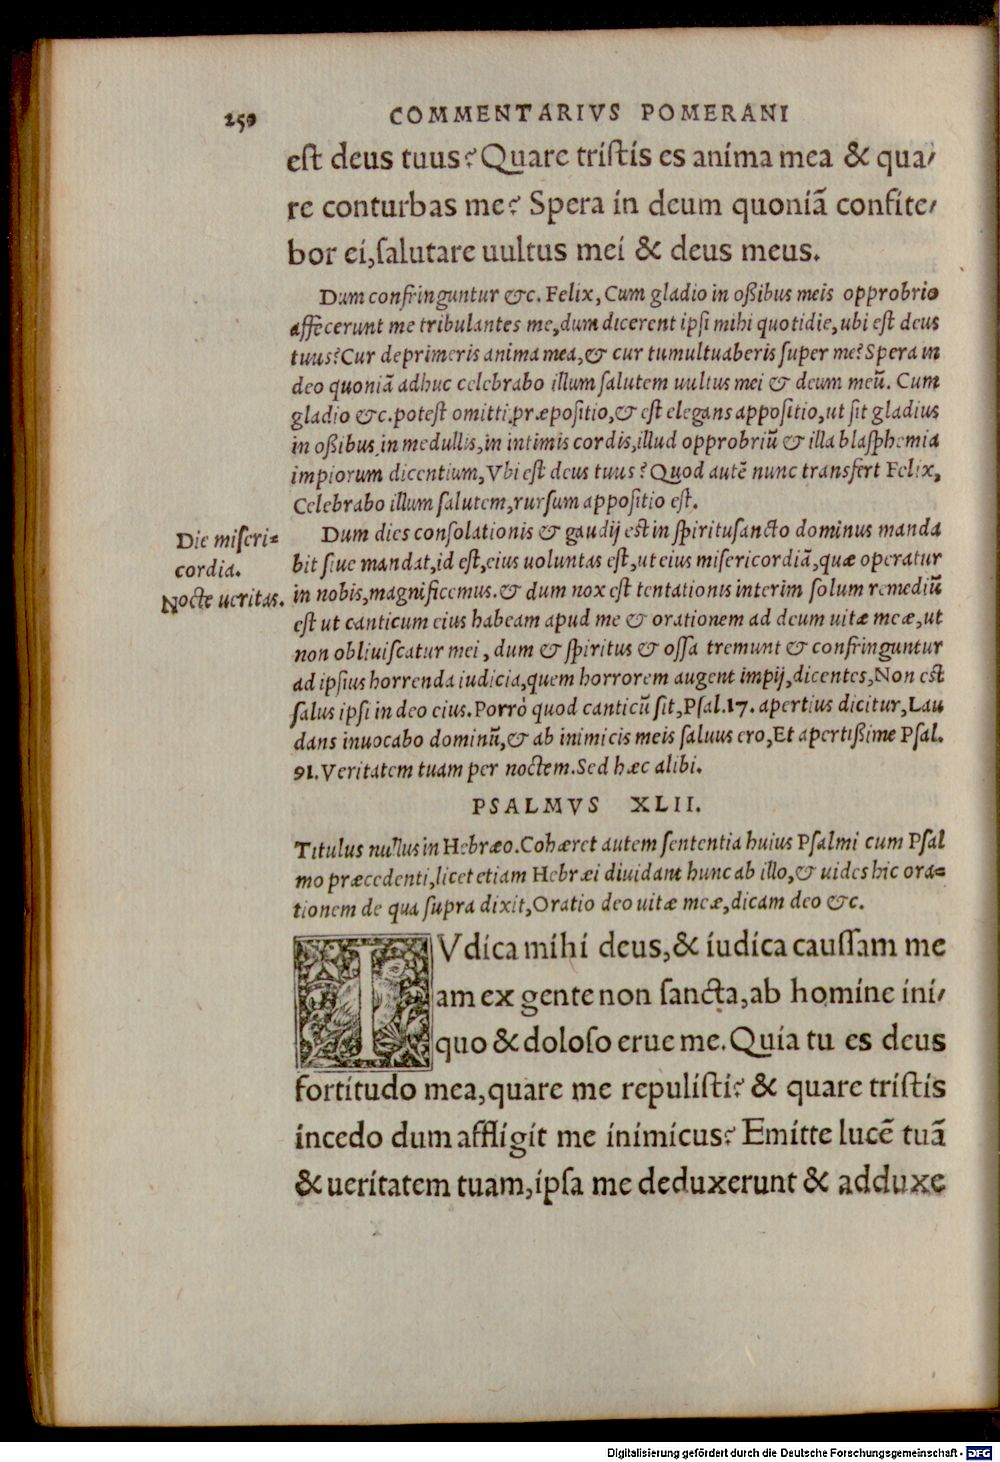 250 COMMENTARIVS POMERANI
est deus tuus? Quare tristis es anima mea & qua/
re conturbas me? Spera in deum quoniã confite/
bor ei, salutare uultus mei & deus meus.
Dum confringuntur &c. Felix, Cum gladio in oßibus meis opprobrio
affecerunt me tribulantes me, dum dicerent ipsi mihi quotidie, ubi est deus
tuus? Cur deprimeris anima mea, & cur tumultuaberis super me? Spera in
deo quoniã adhuc celebrabo illum salutem uultus mei & deum meũ. Cum
gladio &c. potest omitti præpositio, & est elegans appositio, ut sit gladius
in oßibus in medullis, in intimis cordis, illud opprobriũ & illa blasphemia
impiorum dicentium, Vbi est deus tuus? Quod autẽ nunc transfert Felix,
Celebrabo illum salutem, rursum appositio est.
Dum dies consolationis & gaudij est in spiritusancto dominus manda
Die miseri=
cordia.
bit siue mandat, id est, eius uoluntas est, ut eius misericordiã, quæ operatur
Nocte ueritas.
in nobis, magnificemus. & dum nox est tentationis interim solum remediũ
est ut canticum eius habeam apud me & orationem ad deum uitæ meæ, ut
non obliuiscatur mei, dum & spiritus & ossa tremunt & confringuntur
ad ipsius horrenda iudicia, quem horrorem augent impij, dicentes, Non est
salus ipsi in deo eius. Porrò quod canticũ sit, Psal. 17. apertius dicitur, Lau
dans inuocabo dominũ, & ab inimicis meis saluus ero, Et apertißime Psal.
91. Veritatem tuam per noctem. Sed hæc alibi.
PSALMVS XLII.
Titulus nullus in Hebræo. Cohæret autem sententia huius Psalmi cum Psal
mo præcedenti, licet etiam Hebræi diuidant hunc ab illo, & uides hic ora=
tionem de qua supra dixit, Oratio deo uitæ meæ, dicam deo &c.
IVdica mihi deus, & iudica caussam me
am ex gente non sancta, ab homine ini/
quo & doloso erue me. Quia tu es deus
fortitudo mea, quare me repulisti? & quare tristis
incedo dum affligit me inimicus? Emitte lucẽ tuã
& ueritatem tuam, ipsa me deduxerunt & adduxe
Digitalisierung gefördert durch die Deutsche Forschungsgemeinschaft - DFG